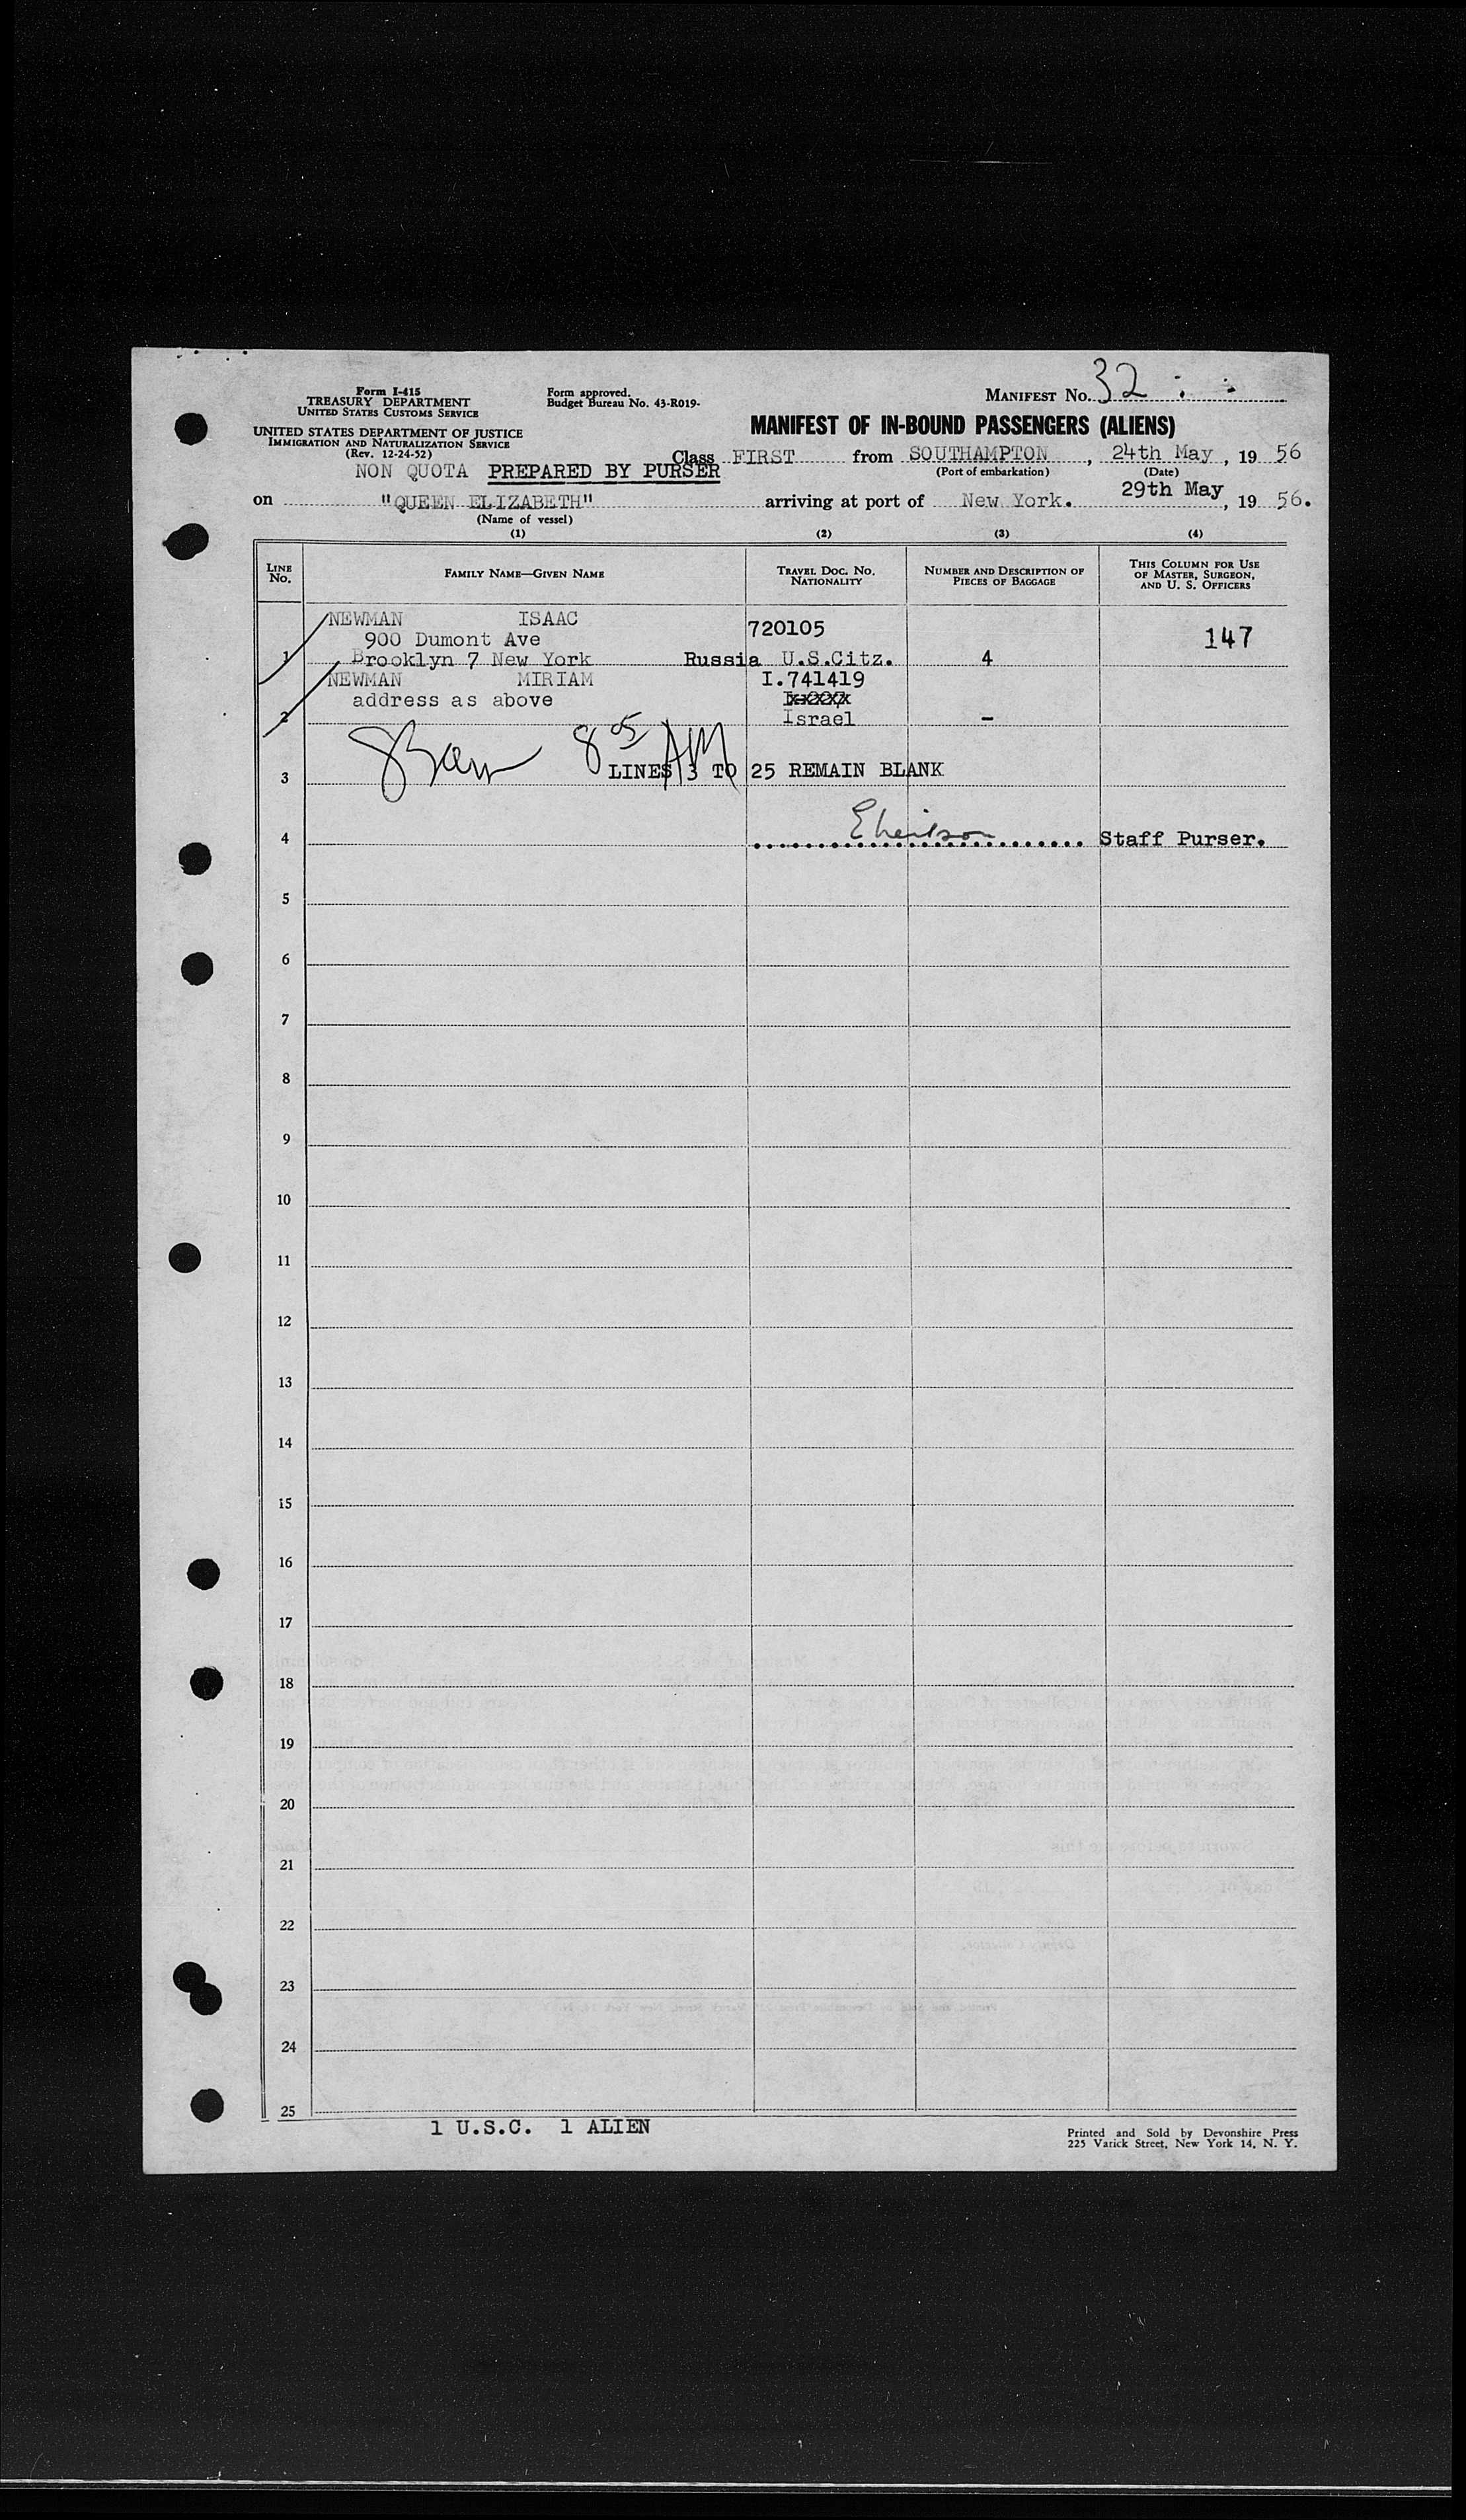 Form I-415
TREASURY DEPARTMENT
UNITED STATES CUSTOMS SERVICE
UNITED STATES DEPARTMENT OF JUSTICE
IMMIGRATION AND NATURALIZATION SERVICE
(Rev. 12-24-52)
Form approved.
Budget Bureau No. 43-R019-
MANIFEST No. 32
MANIFEST OF IN-BOUND PASSENGERS (ALIENS)
NON QUOTA PREPARED BY PURSER
Class FIRST from SOUTHAMPTON, 24th May, 19 56
(Port of embarkation) (Date)
on "QUEEN ELIZABETH" arriving at port of New York. 29th May, 19 56.
(Name of vessel)
(1) (2) (3) (4)
LINE No.
FAMILY NAME—GIVEN NAME
TRAVEL DOC. NO. NATIONALITY
NUMBER AND DESCRIPTION OF PIECES OF BAGGAGE
THIS COLUMN FOR USE OF MASTER, SURGEON, AND U. S. OFFICERS
NEWMAN ISAAC
900 Dumont Ave 720105 147
1 Brooklyn 7 New York Russia U.S.Citz. 4
NEWMAN MIRIAM I.741419
address as above
2 Israel -
8 05 AM
3 LINES 3 TO 25 REMAIN BLANK
4 Staff Purser.
5
6
7
8
9
10
11
12
13
14
15
16
17
18
19
20
21
22
23
24
25
1 U.S.C. 1 ALIEN
Printed and Sold by Devonshire Press
225 Varick Street, New York 14, N. Y.